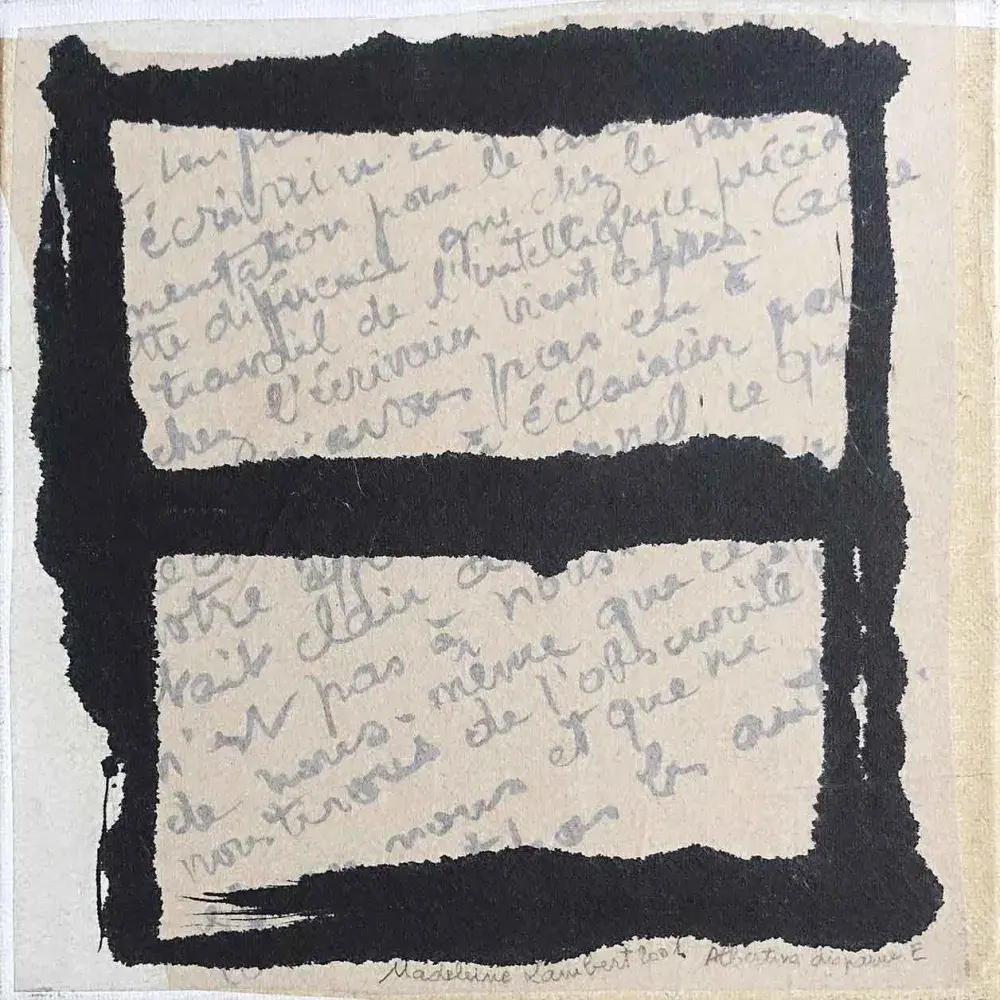 écrivain ce
mentation pour le savant
tte différence que chez le savant
travail de l'intelligence précèd
chez l'écrivain vient après. Ce que
n'avons pas eu à
à éclaircir par
nnel, ce qui
otre effo
tait clair
n'est pas à nous
de nous-même que ce
nous tirons de l'obscurité
nous et que ne
pas les aut
Madeleine Lambert 2004 Albertine disparue E